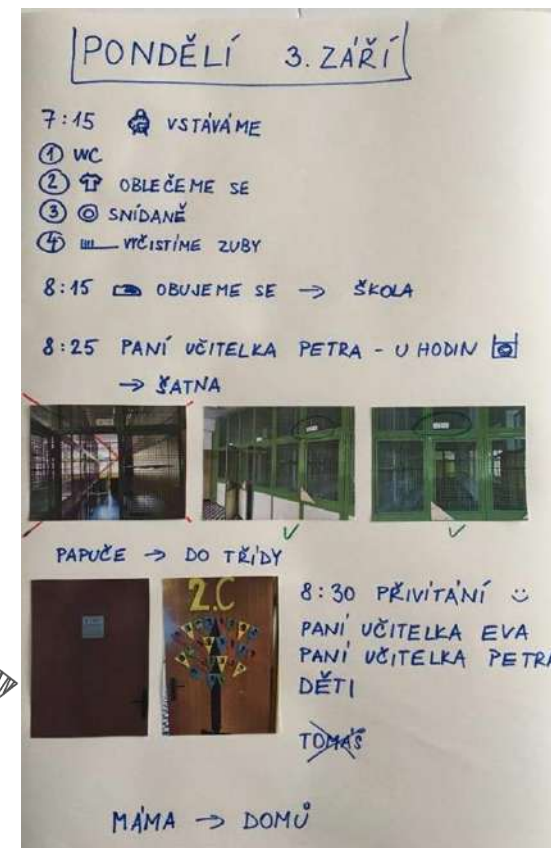 PONDĚLÍ 3. ZÁŘÍ
7:15 VSTÁVÁME
① WC
② OBLEČEME SE
③ SNÍDANĚ
④ VYČISTÍME ZUBY
8:15 OBUJEME SE → ŠKOLA
8:25 PANÍ UČITELKA PETRA - U HODIN
→ ŠATNA
PAPUČE → DO TŘÍDY
2.C
8:30 PŘIVÍTÁNÍ
PANÍ UČITELKA EVA
PANÍ UČITELKA PETRA
DĚTI
TOMÁŠ
MÁMA → DOMŮ